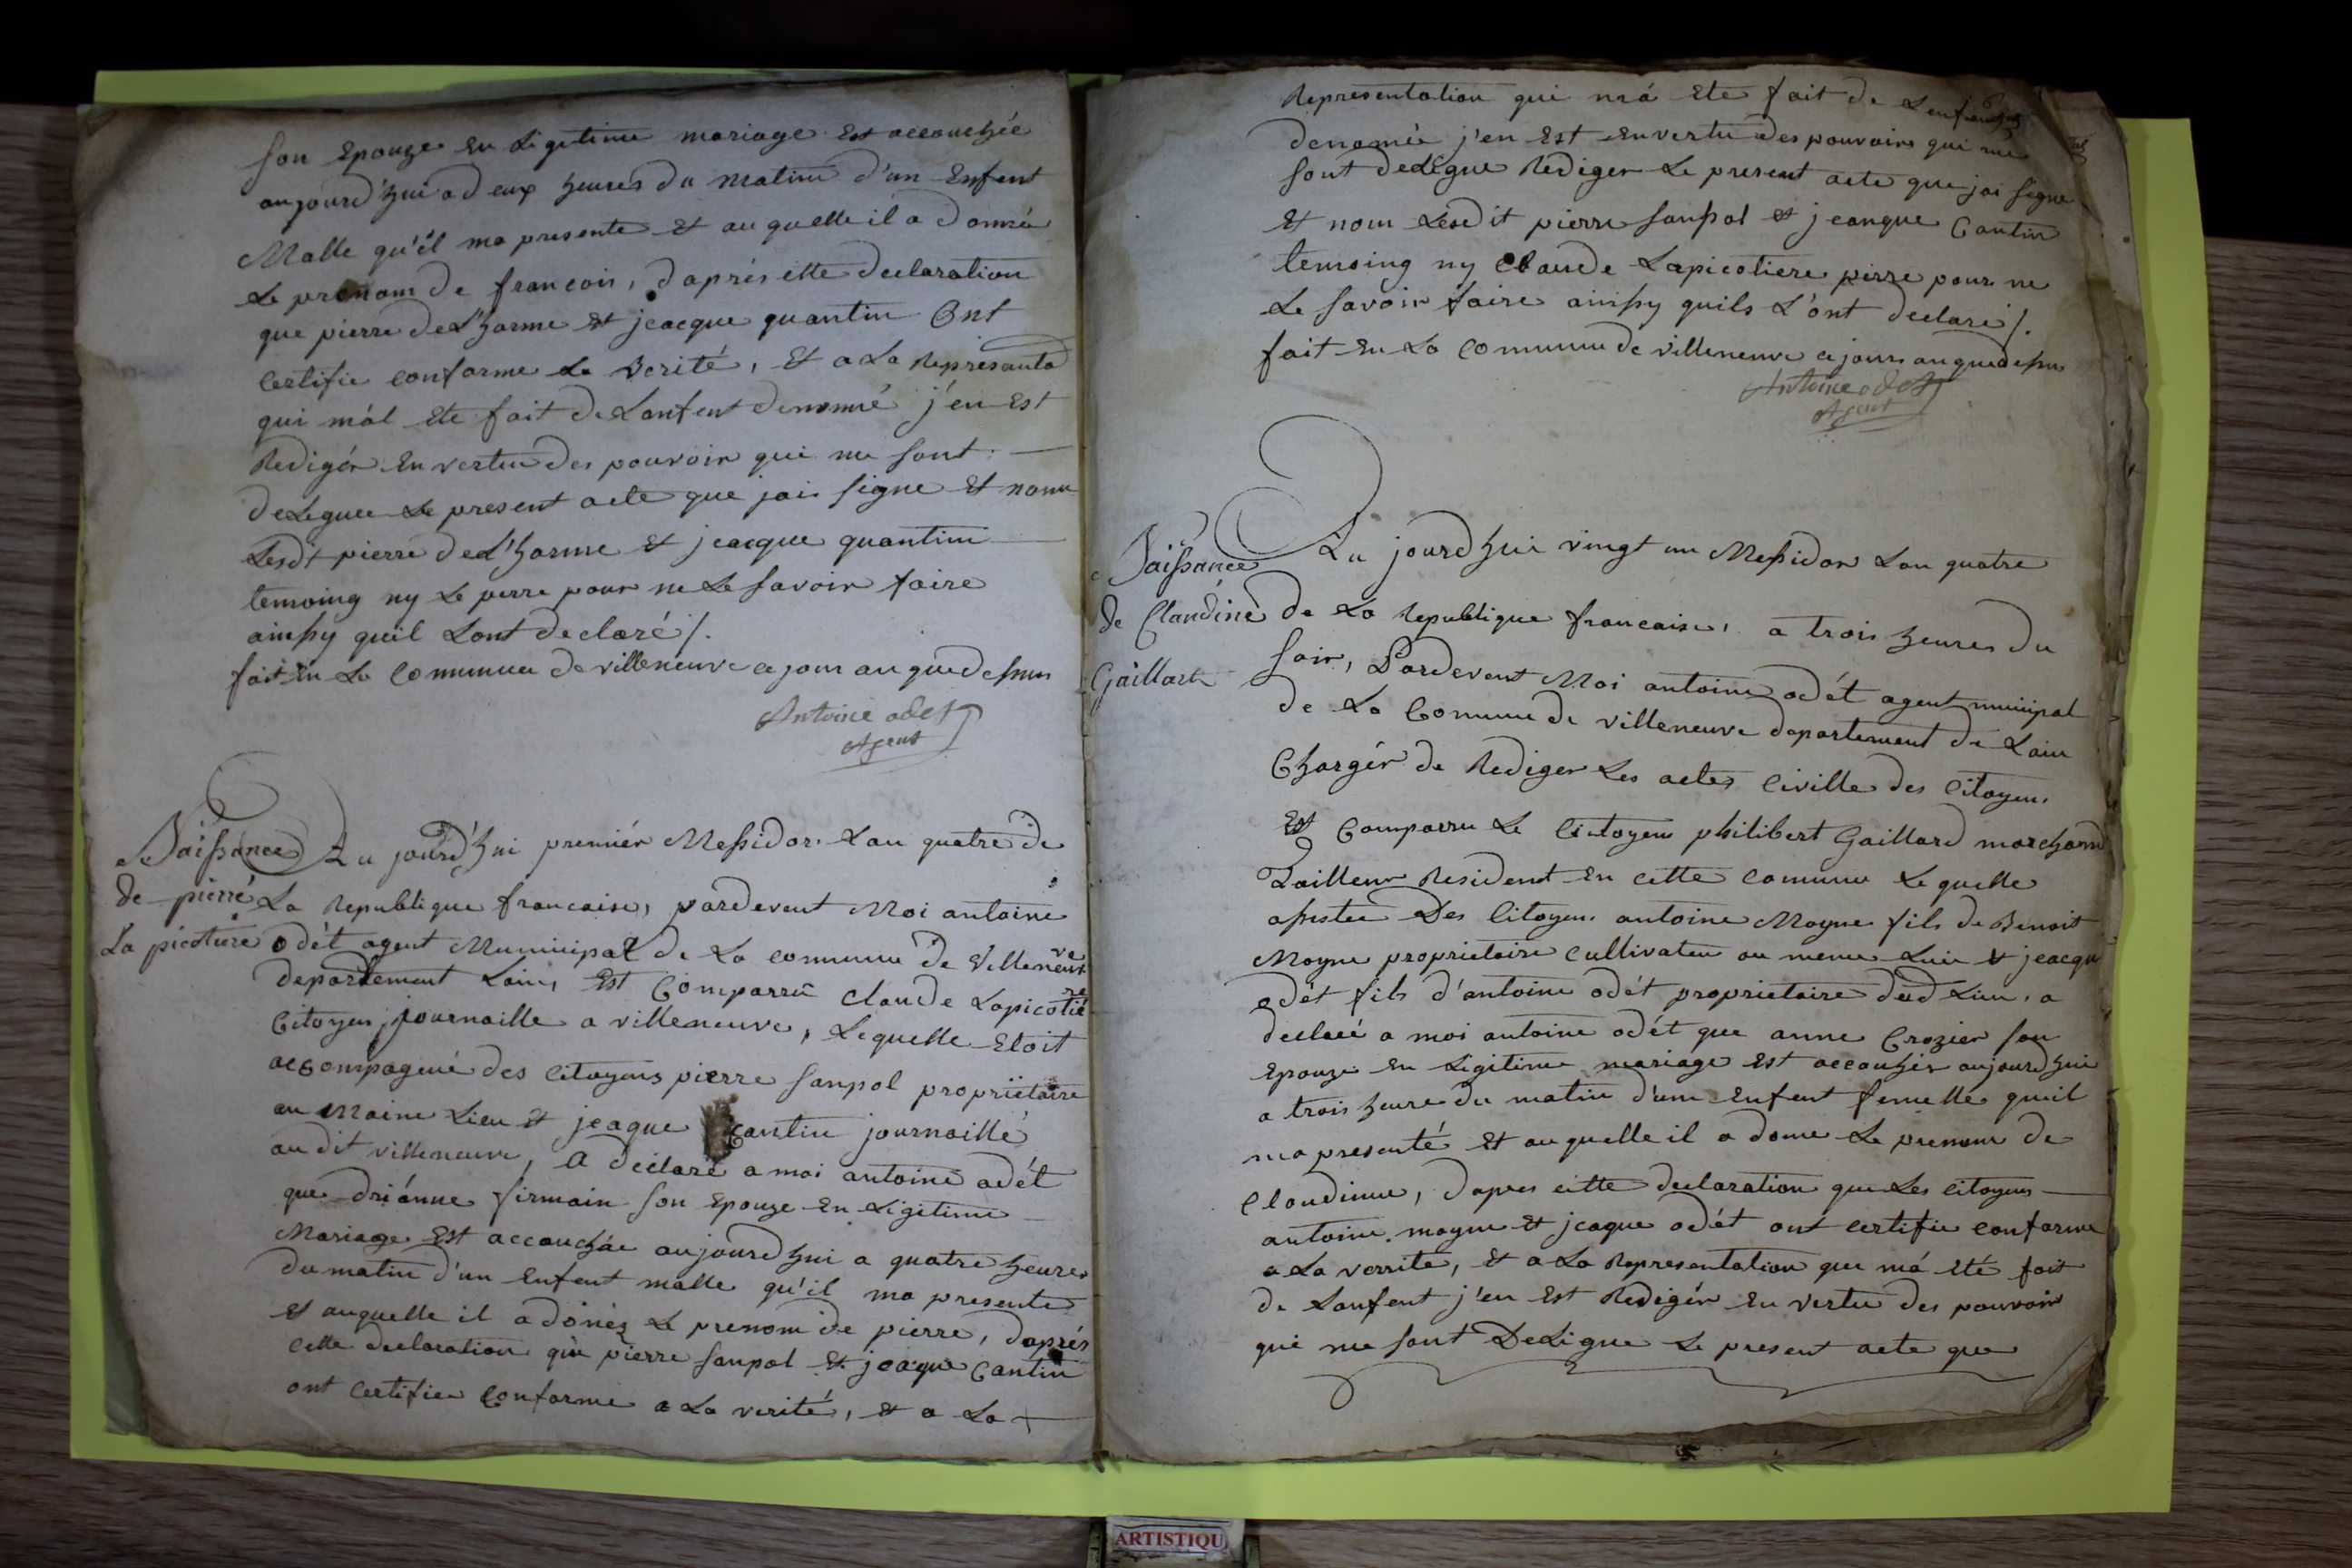 son Epouze en Legitime mariage Est accouchée
aujourd'hui a deux heures du matin d'un Enfent
Malle qu'il ma presente Et au quelle il a donnée
Le prenom de francois, daprés cette declaration
que pierre deL'horme Et jeacque quantin Ont
certifie conforme La verité, Et a La Represanta
qui má ete fait de Lanfent denomé j'en Est
Redigér En vertu des pouvoir qui me sont
deleguee Le present acte que jais signe Et nonn
Lesdt pierre deL'horme Et jeacque quantin
temoing ny Le perre pour ne Le savoir faire
ainssy quil Lont declaré /.
fait En La Commune de villeneuve ce jour an que dessus
Antoine odet
Agent
Naissance
de pierre
La picotiere
Au jourd'hui premiér Messidor L'an quatre de
La Republique francaise, pardevent Moi antoine
odét agent Municipal de La commune de Villeneuve
departement Lain, Est Comparrû claude Lapicotiére
Citoyen journaille a villeneuve, Lequelle Etoit
accompagné des Citoyens pierre sanpol propriètaire
au maine Lieu Et jeaque Cantin journaille
au dit villeneuve, a déclaré a moi antoine odét
que driánne firmain son Epouze En Ligitime
Mariage Est accouchée aujourdhui a quatre heures
du matin d'un Enfent malle qu'il ma presente
Et auquelle il a donéz Le prenom de pierre, daprés
cette declaration que pierre sanpol Et jeaque Cantin
ont certifiee Conforme a La verité, Et a La
Representation qui má Ete fait de Lenfent
denomée j'en Est En vertu des pouvoirs qui me
sont deLégue Rediger Le present acte que jai signe
Et nom Lesdit pierre sanpol Et jeanque Cantin
temoing ny Claude Lapicotiere pérre pour ne
Le savoir faire ainssy quils L'ont declaré /.
fait En La Commune de villeneuve ce jour an que dessus
Antoine odet
Agent
Naissance
de Claudine
Gaillart
Au jourdhui vingt un Messidor Lan quatre
de La Republique francaise, a trois heures du
soir, Pardevent Moi antoine odét agent municipal
de La Comune de villeneuve departement de Lain
Chargér de Rediger Les actes Civille des Citoyens
Est Comparru Le Citoyen philibert Gaillard marchand
Tailleur Resident En cette comune Le quelle
assistee Des Citoyens antoine Moyne fils de Benoit
Moyne proprietaire Cultivateu au meme Luie Et jeacqu
odét fils d'antoine odét proprietaire dud Lieu, a
declaré a moi antoine odét que anne Crozier son
Epouze En Ligitime mariage Est accouhér aujourdhui
a trois heure du matin d'une Enfent femelle quil
ma presenté Et au quelle il a done Le prenom de
Claudine, dapres cette declaration que Les citoyens
antoine moyne Et jeaque odét ont certifie conforme
a La verrite, Et a La Representation que má Eté fait
de Lanfent j'en Est Redigér En vertu des pouvoir
qui me sont DeLigue Le present acte que
ARTISTIQU